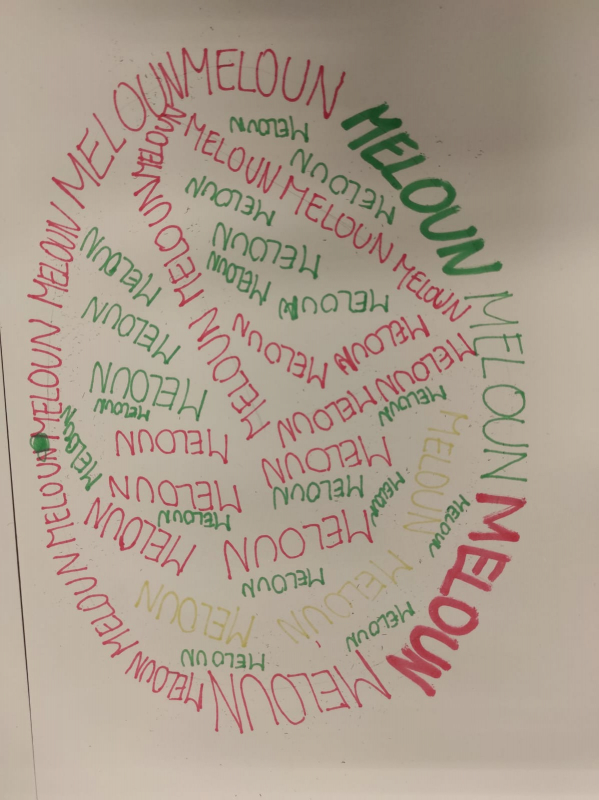 MELOUN
MELOUN
MELOUN
MELOUN
MELOUN
MELOUN
MELOUN
MELOUN
MELOUN
MELOUN
MELOUN
MELOUN
MELOUN
MELOUN
MELOUN
MELOUN
MELOUN
MELOUN
MELOUN
MELOUN
MELOUN
MELOUN
MELOUN
MELOUN
MELOUN
MELOUN
MELOUN
MELOUN
MELOUN
MELOUN
MELOUN
MELOUN
MELOUN
MELOUN
MELOUN
MELOUN
MELOUN
MELOUN
MELOUN
MELOUN
MELOUN
MELOUN
MELOUN
MELOUN
MELOUN
MELOUN
MELOUN
MELOUN
MELOUN
MELOUN
MELOUN